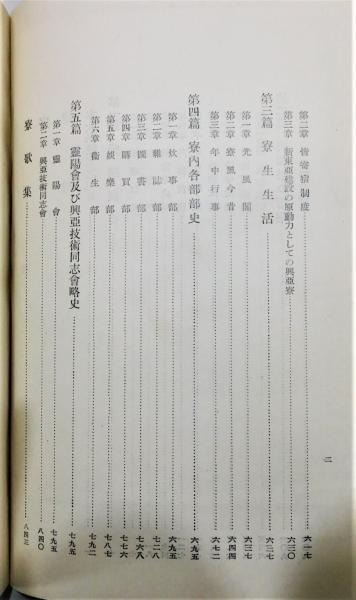 第二章 皆寄宿制度……六一七
第三章 新東亞建設の原動力としての興亞寮……六三〇
第三篇 寮生生活……六三七
第一章 光風閣……六三七
第二章 寮風今昔……六四四
第三章 年中行事……六七二
第四篇 寮內各部部史……六九五
第一章 炊事部……六九五
第二章 雜誌部……七二八
第三章 圖書部……七六八
第四章 購買部……七七六
第五章 娛樂部……七八七
第六章 衞生部……七九二
第五篇 靈陽會及び興亞技術同志會略史……七九五
第一章 靈陽會……七九五
第二章 興亞技術同志會……八四〇
寮歌集……八四三
二